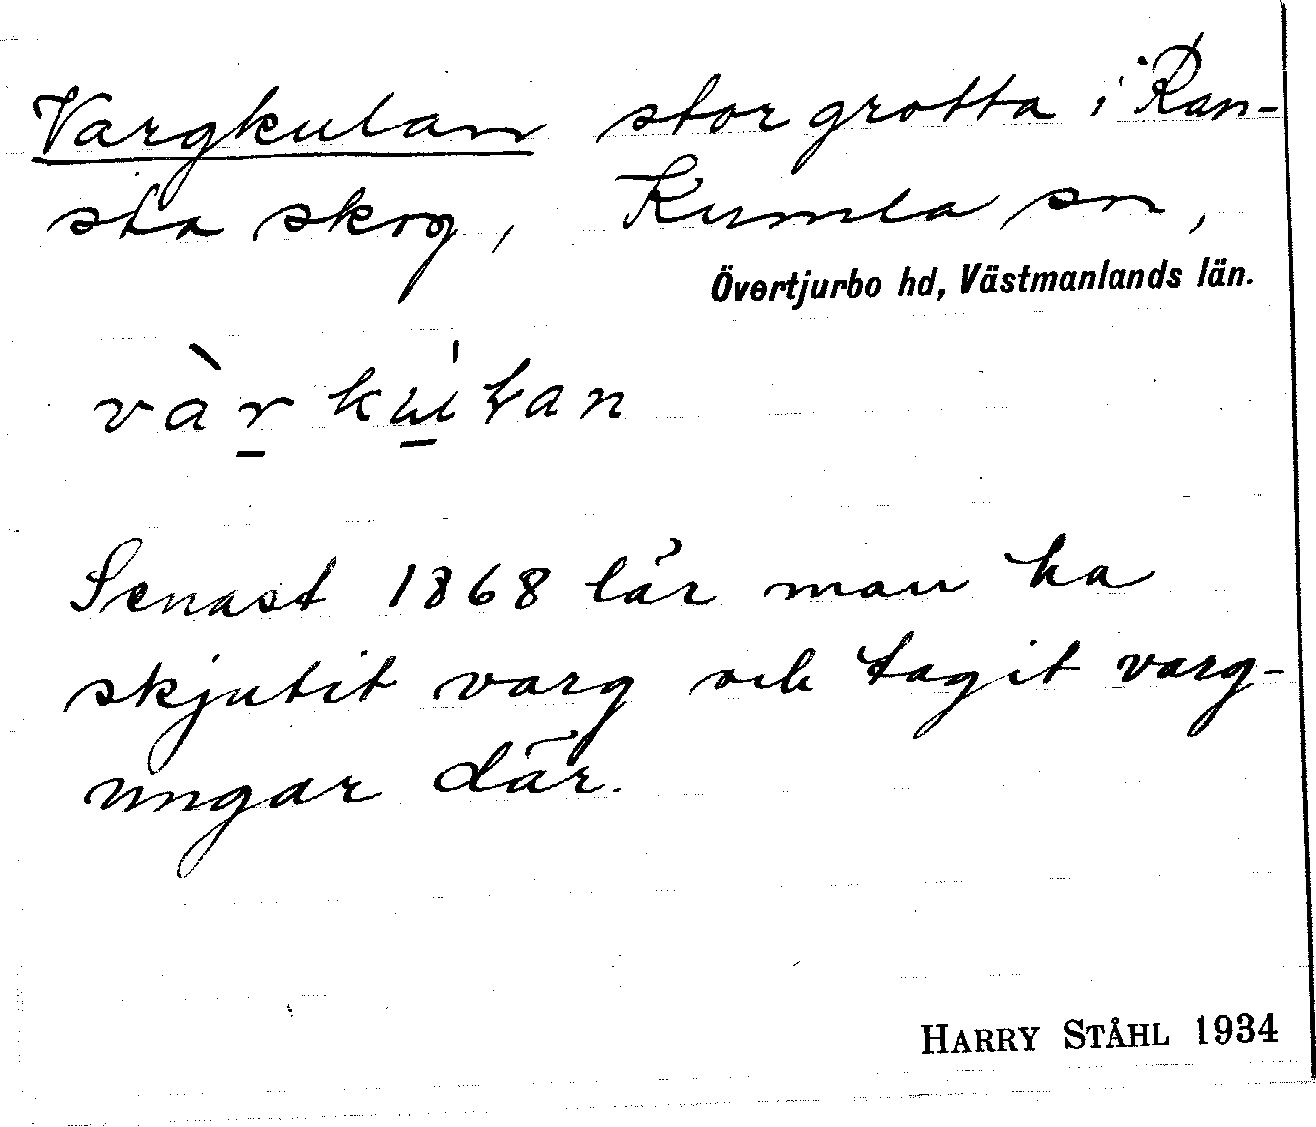 Vargkulan stor grotta i Ran-
sta skog, Kumla sn,
Övertjurbo hd, Västmanlands län.
Senast 1868 lär man ha
skjutit varg och tagit varg-
ungar där.
HARRY STÅHL 1934